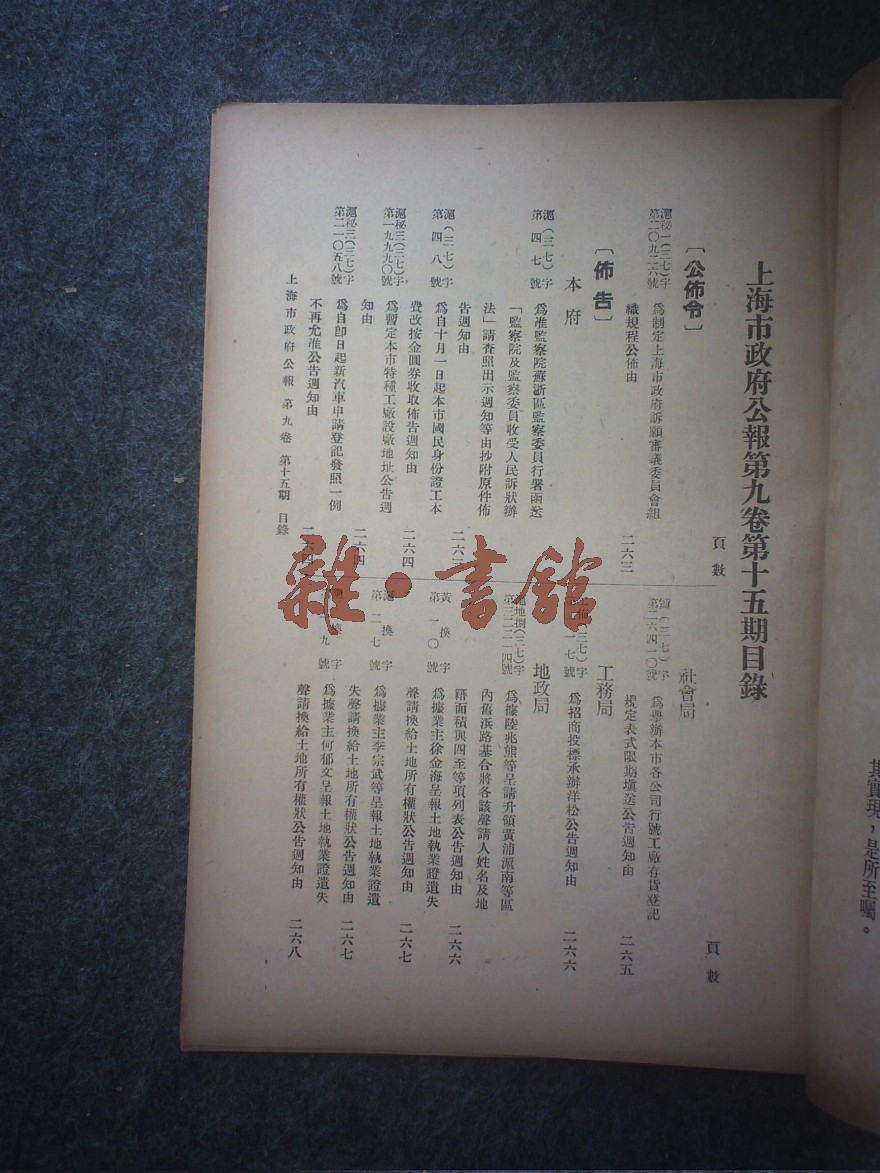 上海市政府公報第九卷第十五期目錄
頁數
〔公佈令〕
滬秘一(三七)字
第二〇九二六號
爲制定上海市政府訴願審議委員會組
織規程公佈由
二六三
〔佈告〕
本府
滬(三七)字
第四七號
爲准監察院蘇浙區監察委員行署函送
「監察院及監察委員收受人民訴狀辦
法」請查照出示週知等由抄附原件佈
告週知由
滬(三七)字
第四八號
爲自十月一日起本市國民身份證工本
費改按金圓券收取佈告週知由
二六四
滬秘三(三七)字
第一九九九〇號
爲暫定本市特種工廠設廠地址公告週
知由
二六四
滬秘三(三七)字
第二一〇五八號
爲自卽日起新汽車申請登記發照一例
不再允准公告週知由
上海市政府公報 第九卷 第十五期 目錄
頁數
社會局
第二六四一〇號
爲舉辦本市各公司行號工廠存貨登記
規定表式限期塡送公告週知由
二六五
工務局
爲招商投標承辦洋松公告週知由
二六六
地政局
滬地捌(三七)字
第三二二一四號
爲據陸兆熊等呈請升領黃浦派南等區
內舊浜路基合將各該聲請人姓名及地
籍面積與四至等項列表公告週知由
二六六
黃換字
第一〇號
爲據業主徐金海呈報土地執業證遺失
聲請換給土地所有權狀公告週知由
二六七
滬換字
第二七號
爲據業主李宗武等呈報土地執業證遺
失聲請換給土地所有權狀公告週知由
二六七
爲據業主何郁文呈報土地執業證遺失
聲請換給土地所有權狀公告週知由
二六八
雜·書館
其實現，是所至囑。